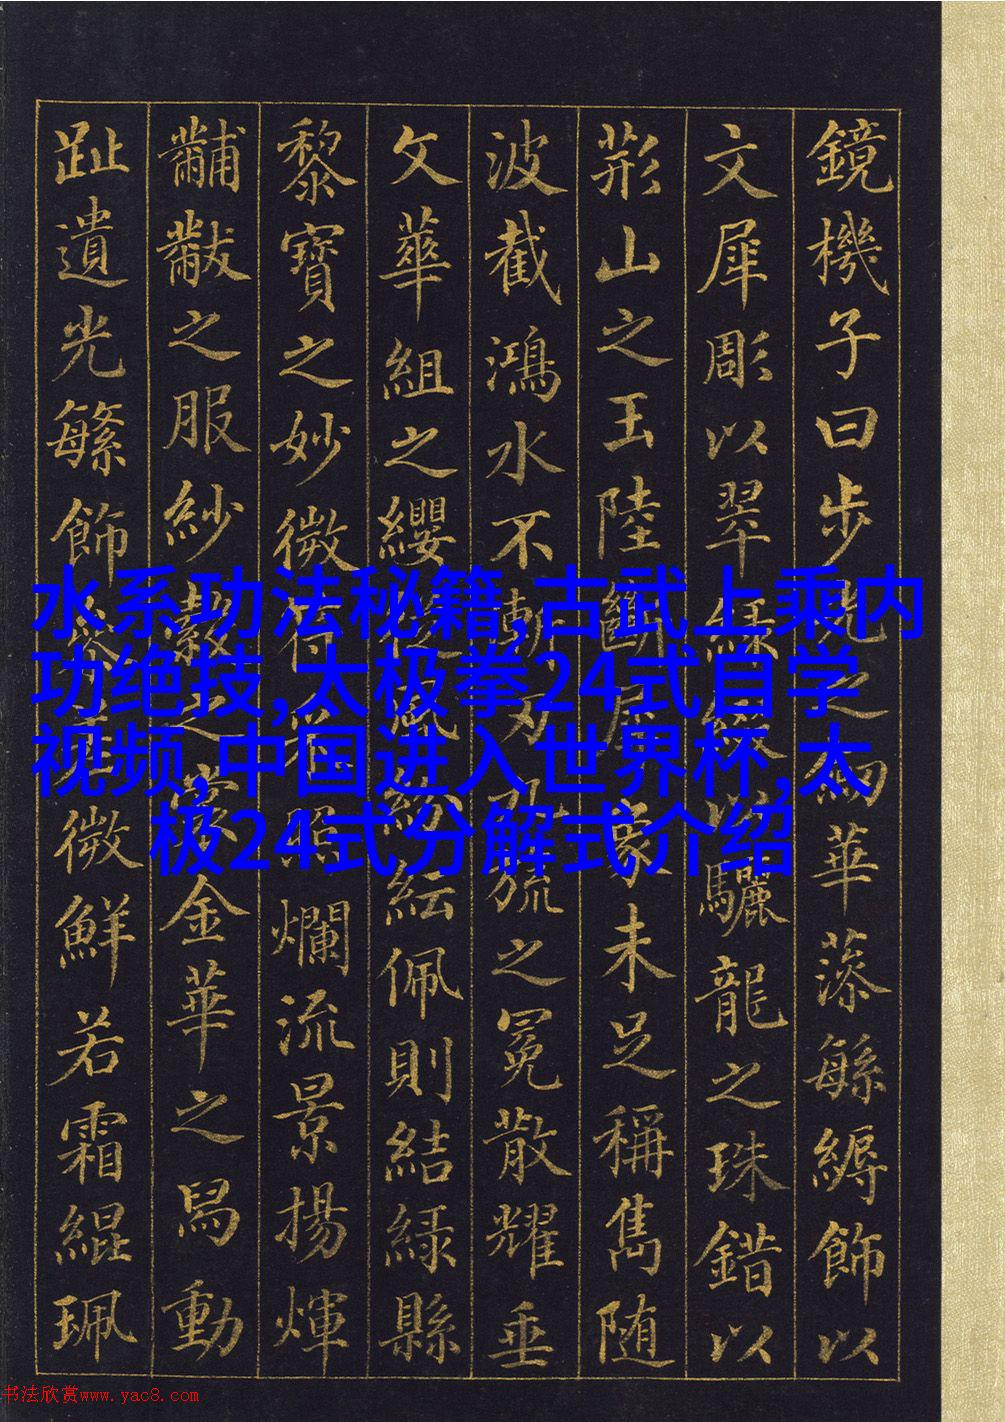 鏡機子曰步之華藻緐縟飾以
文犀彫以翠綠綴以驪龍之珠錯以
荊山之玉陸斷犀象未足稱雋随
波截鴻水不漸刃九旒之冕散耀垂
文華組之纓從風紛紜佩則結緑縣
黎寶之妙微符采照爛流景揚煇
黼黻之服紗縠之裳金華之舄動
趾遺光緐飾微鮮若霜緄珮
水系功法秘籍,古武上乘内
功绝技,太极拳24式自学
视频,中国进入世界杯,太
极24式分解式介绍
书法欣赏www.yac8.com